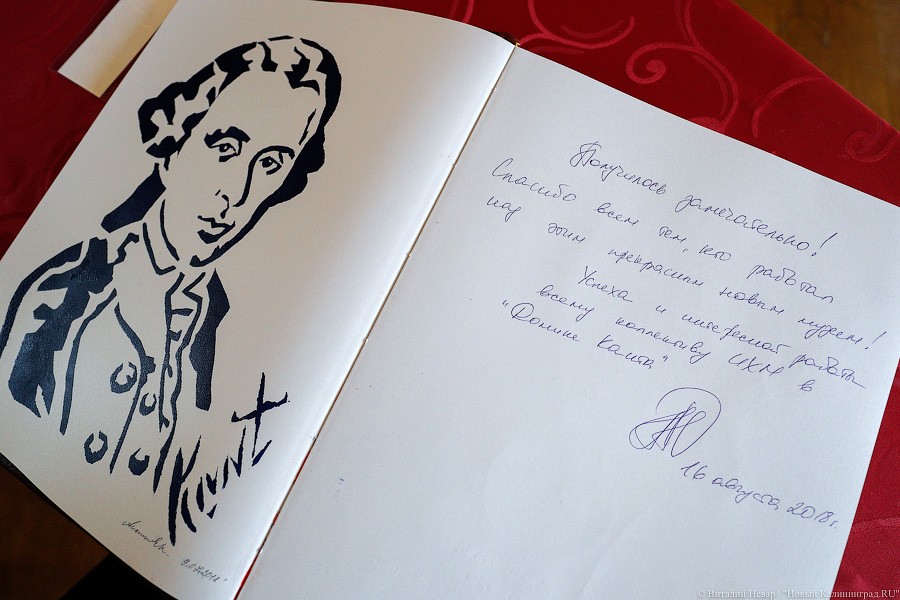 Kant
8.08.2018
Получилось замечательно!
Спасибо всем тем, кто работал
над этим прекрасным новым музеем!
Успеха и интересной работы
всему коллективу ИХМ в
"Домике Канта"
16 августа 2018 г.
© Виталий Невар | "Новый Калининград.RU"